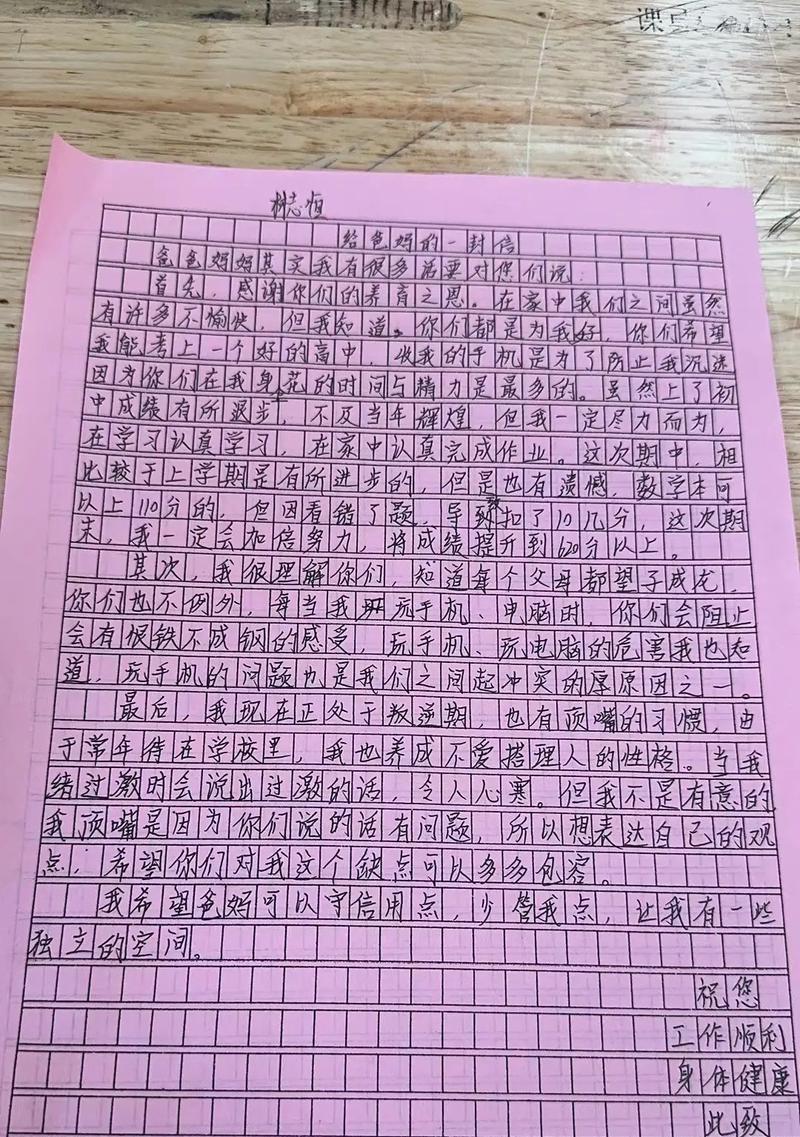 课
志恒
给爸妈的一封信
爸爸妈妈其实我有很多话要对您们说:
首先,感谢你们的养育之恩。在家中我们之间虽然
有许多不愉快,但我知道。你们都是为我好,你们希望
我能考上一个好的高中,收我的手机是为了防止我沉迷
因为你们在我身花的时间与精力是最多的。虽然上了初
中成绩有所退步,不及当年辉煌,但我一定尽力而为,
在学习认真学习,在家中认真完成作业。这次期中,相
比较于上学期是有所进步的,但是也有遗憾,数学本可
以上110分的,但因看错了题,导致扣了10几分,这次期
末,我一定会加倍努力,将成绩提升到620分以上。
其次,我很理解你们,知道每个父母都望子成龙,
你们也不例外,每当我玩手机、电脑时,你们会阻止
会有恨铁不成钢的感受,玩手机、玩电脑的危害我也知
道,玩手机的问题也是我们之间起冲突的原因之一。
最后,我现在正处于叛逆期,也有顶嘴的习惯,由
于常年待在学校里,我也养成不爱搭理人的性格。当我
绪过激时会说出过激的话,令人心寒。但我不是有意的
我顶嘴是因为你们说的话有问题,所以想表达自己的观
点,希望你们对我这个缺点可以多多包容。
我希望爸妈可以守信用点,少管我点,让我有一些
独立的空间。
祝您
工作顺利
身体健康
此致